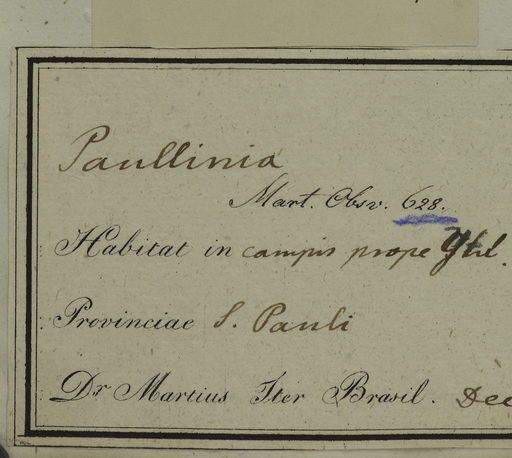 Paullinia
Mart. Obsv. 628.
Habitat in campis prope
Provinciae S. Pauli
Dr. Martius Iter Brasil. Dec